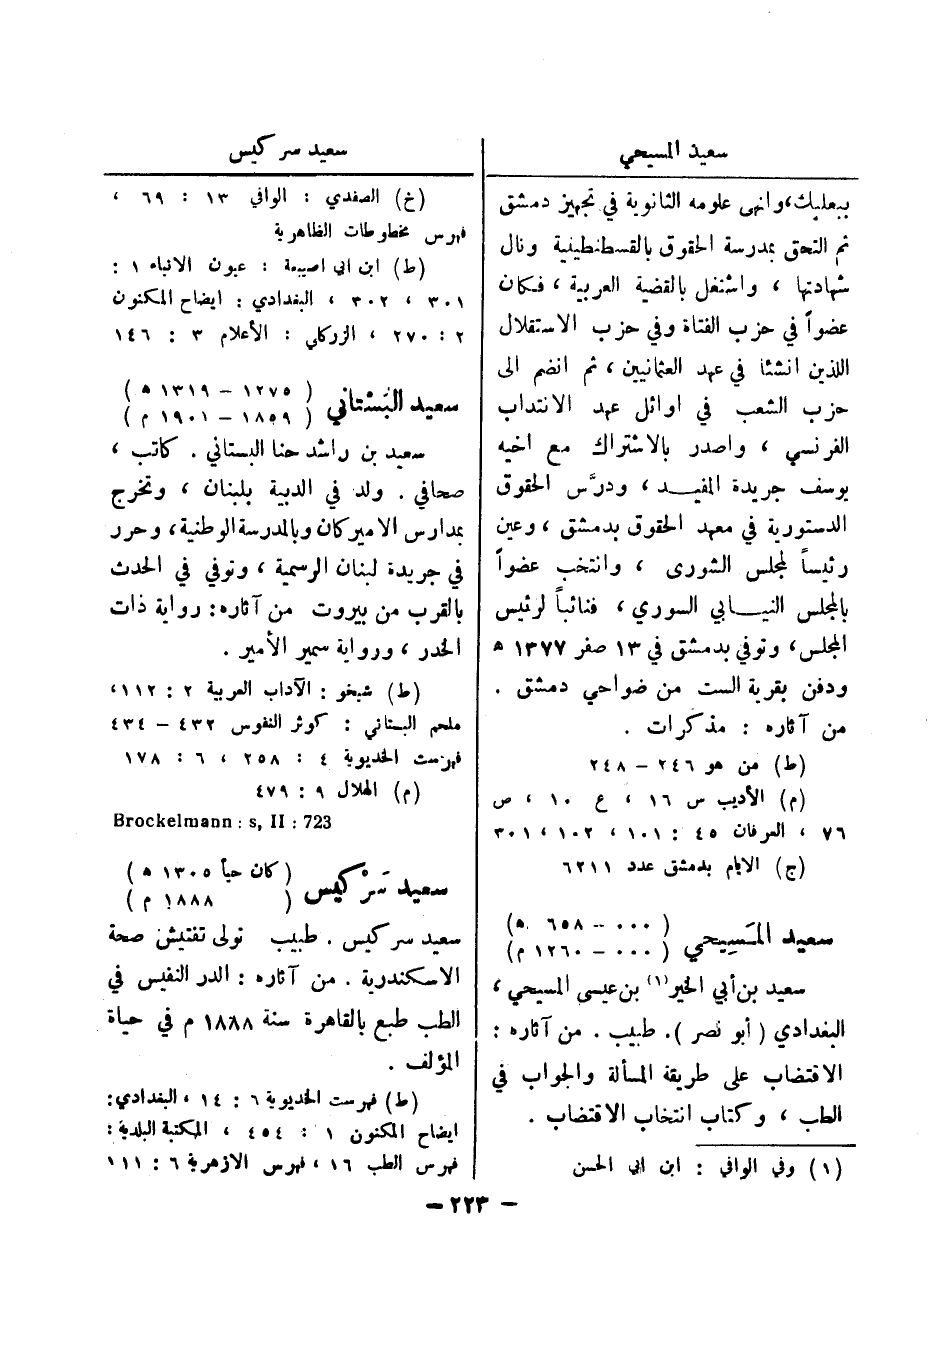 سعيد المسيحي
ببعلبك، وانهى علومه الثانوية في تجهيز دمشق
ثم التحق بمدرسة الحقوق بالقسطنطينية ونال
شهادتها ، واشتغل بالقضية العربية ، فكان
عضواً في حزب الفتاة وفي حزب الاستقلال
اللذين انشئا في عهد العثمانيين ، ثم انضم الى
حزب الشعب في اوائل عهد الانتداب
الفرنسي ، واصدر بالاشتراك مع اخيه
يوسف جريدة المفيد ، ودرَّس الحقوق
الدستورية في معهد الحقوق بدمشق ، وعين
رئيساً لمجلس الشورى ، وانتخب عضواً
بالمجلس النيابي السوري ، فنائباً لرئيس
المجلس، وتوفي بدمشق في ١٣ صفر ١٣٧٧ ه
ودفن بقرية الست من ضواحي دمشق .
من آثاره : مذكرات .
(ط) من هو ٢٤٦ – ٢٤٨
(م) الأديب س ١٦ ، ع ١٠ ، ص
٧٦ ، العرفان ٤٥ : ١٠١ ، ١٠٢ ، ٣٠١
(ج) الايام بدمشق عدد ٦٢١١
سعيد المَسِيحي ( ٠٠٠ – ٦٥٨ ه)
( ٠٠٠ – ١٢٦٠ م)
سعيد بن أبي الخير(١) بن عيسى المسيحي ،
البغدادي ( أبو نصر ). طبيب . من آثاره :
الاقتضاب على طريقة المسألة والجواب في
الطب ، وكتاب انتخاب الاقتضاب .
(١) وفي الوافي : ابن ابي الحسن
سعيد سركيس
(خ) الصفدي : الوافي ١٣ : ٦٩ ،
فهرس مخطوطات الظاهرية
(ط) ابن ابي اصيبعة : عيون الانباء ١ :
٣٠١ ، ٣٠٢ ، البغدادي : ايضاح المكنون
٢ : ٢٧٠ ، الزركلي : الأعلام ٣ : ١٤٦
سعيد البُسْتاني ( ١٢٧٥ – ١٣١٩ ه )
( ١٨٥٩ – ١٩٠١ م )
سعيد بن راشد حنا البستاني . كاتب ،
صحافي . ولد في الدبية بلبنان ، وتخرج
بمدارس الاميركان وبالمدرسة الوطنية، وحرر
في جريدة لبنان الرسمية ، وتوفي في الحدث
بالقرب من بيروت من آثاره: رواية ذات
الخدر ، ورواية سمير الأمير .
(ط) شيخو : الآداب العربية ٢ : ١١٢،
ملحم البستاني : كوثر النفوس ٤٣٢ – ٤٣٤
فهرست الخديوية ٤ : ٢٥٨ ، ٦ : ١٧٨
(م) الهلال ٩ : ٤٧٩
Brockelmann : s, II : 723
سعيد سَركيس ( كان حياً ١٣٠٥ ه )
( ١٨٨٨ م )
سعيد سركيس . طبيب تولى تفتيش صحة
الاسكندرية . من آثاره : الدر النفيس في
الطب طبع بالقاهرة سنة ١٨٨٨ م في حياة
المؤلف .
(ط) فهرست الخديوية ٦ : ١٤ ، البغدادي:
ايضاح المكنون ١ : ٤٥٤ ، المكتبة البلدية :
فهرس الطب ١٦ ، فهرس الازهرية ٦ : ١١١
– ٢٢٣ –